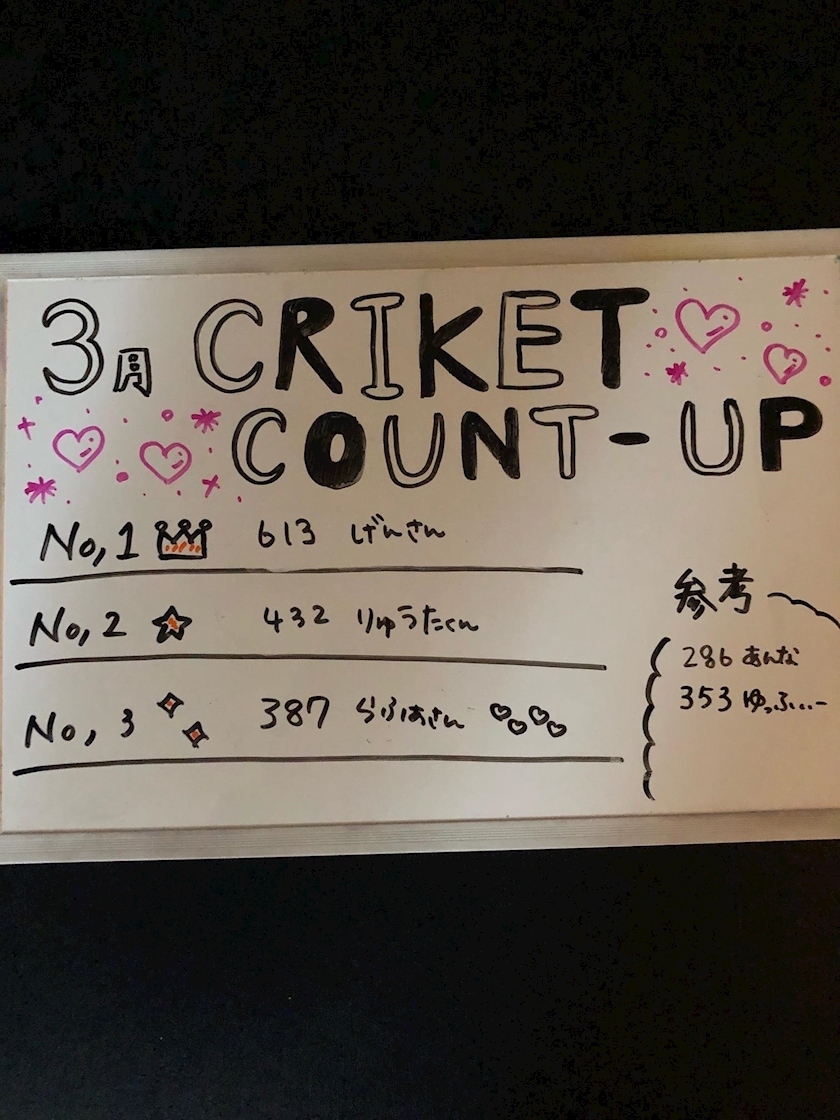 3月 CRIKET
COUNT-UP
No,1 613 げんさん
No,2 432 りゅうたくん
No,3 387 らふぁさん
参考
286 あんな
353 ゆっふぃー